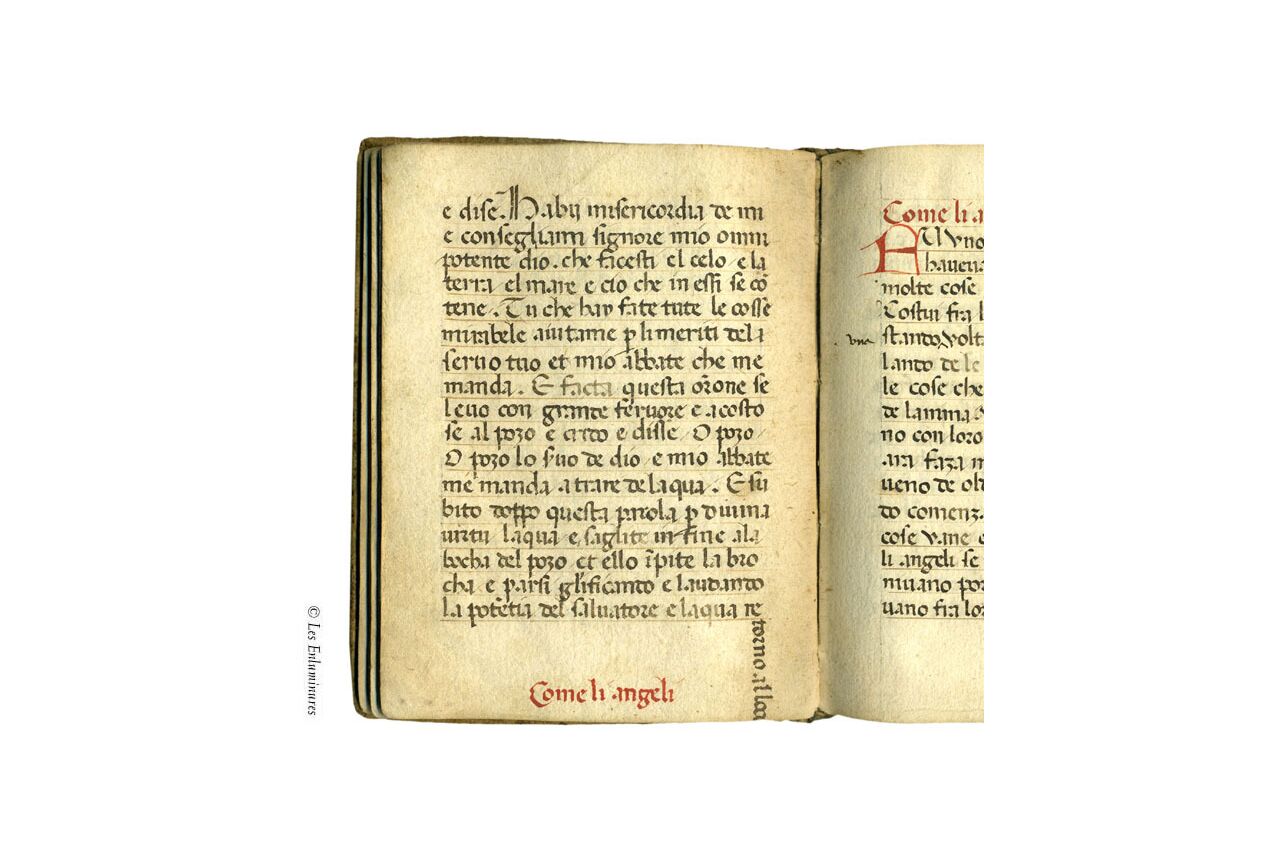 e dise. Haby misericordia de mi
e consegliami signore mio omni
potente dio. che facesti el celo e la
terra el mare e cio che in essi se cõ
tene. Tu che hay fate tute le cosse
mirabele aiutame p li meriti del
seruo tuo et mio abbate che me
manda. E facta questa orõne se
leuo con grande feruore e acosto
se al pozo e crido e disse / O pozo /
O pozo lo s'uo de dio e mio abbate
me manda a trare de laqua. E su
bito doppo questa parola p diuina
uirtu laqua e saglite in fine ala
bocha del pozo et ello ĩpite la bro
cha e parsi glificando e laudando
la potẽtia del saluatore e laqua re
torno al loco
Come li angeli
Come li a
F U vno
haueua
molte cose
Costui fra l
stando volt
vna
lando de le
le cose che
de lamma
no con loro
ara faza m
ueno de ol
do comenz
cose vane
li angeli se
niuano por
uano fra lor
© Les Enluminures